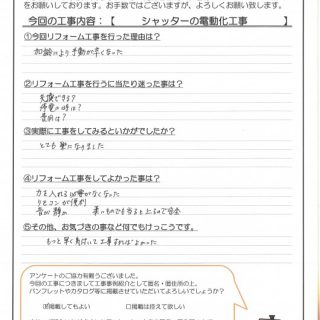 をお願いしております。お手数ではございますが、よろしくお願い致します。
今回の工事内容：【　シャッターの電動化工事　】
①今回リフォーム工事を行った理由は？
加齢により手動が辛くなった
②リフォーム工事を行うに当たり迷った事は？
交換できる？
停電の時は？
費用は？
③実際に工事をしてみるといかがでしたか？
とても楽になりました
④リフォーム工事をしてよかった事は？
力を入れる必要がなくなった
リモコンが便利
音が静か　軽いものでも当ると上るので安全
⑤その他、お気づきの事など何でもけっこうです。
もっと早く気付いて工事すればよかった
アンケートのご協力有難うございました。
今回の工事につきまして工事事例紹介として匿名・御住所の上、
パンフレットやカタログ等に掲載させていただいてよろしいでしょうか？
掲載してもよい　□掲載は控えて欲しい